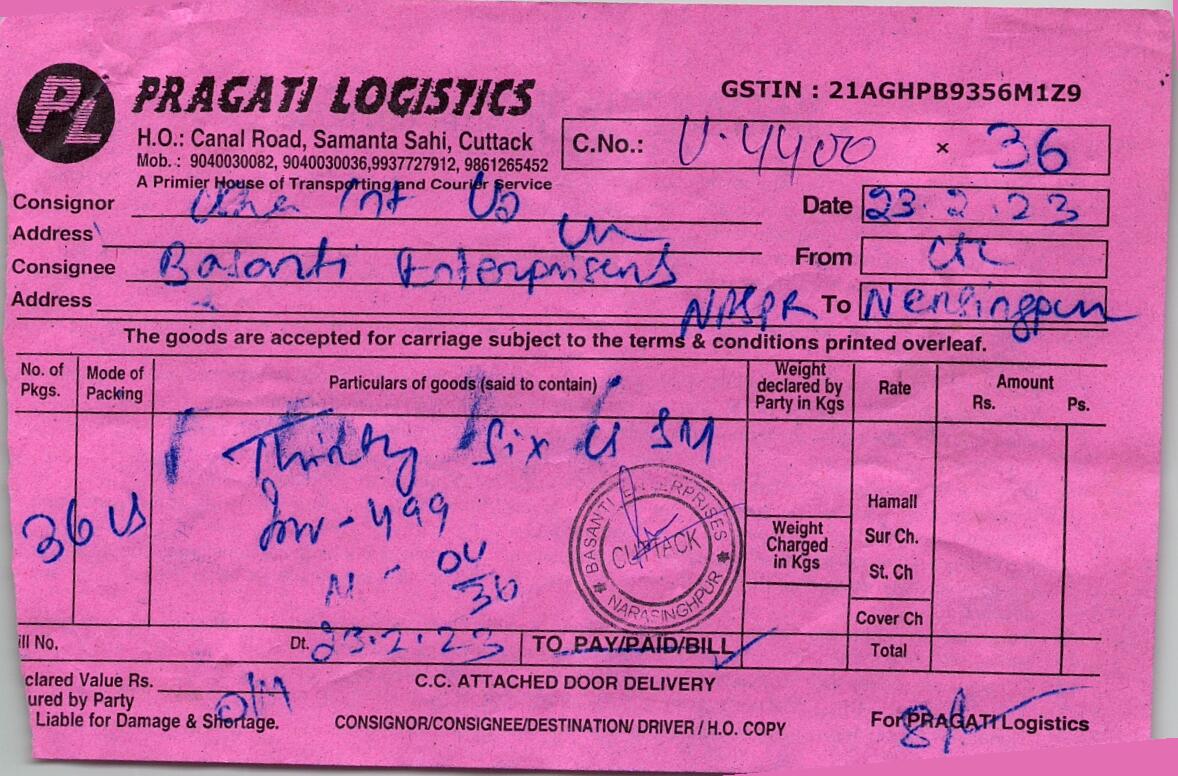 PL PRAGATI LOGISTICS
GSTIN : 21AGHPB9356M1Z9
H.O.: Canal Road, Samanta Sahi, Cuttack
Mob. : 9040030082, 9040030036,9937727912, 9861265452
A Primier House of Transporting and Courier Service
C.No.: U-4400 × 36
Consignor
Date 23.2.23
Address
From ctc
Consignee Basanti Enterprisers
Address NRSPR To
The goods are accepted for carriage subject to the terms & conditions printed overleaf.
No. of Pkgs.
Mode of Packing
Particulars of goods (said to contain)
Weight declared by Party in Kgs
Rate
Amount
Rs. Ps.
Thirty Six
Inv - 499
36
36
BASANTI ENTERPRISES
CUTTACK
NARASINGHPUR
Weight Charged in Kgs
Hamall
Sur Ch.
St. Ch
Cover Ch
Total
ill No.
Dt. 23.2.23
TO PAY/PAID/BILL
clared Value Rs.
ured by Party
Liable for Damage & Shortage.
C.C. ATTACHED DOOR DELIVERY
CONSIGNOR/CONSIGNEE/DESTINATION/ DRIVER / H.O. COPY
For PRAGATI Logistics